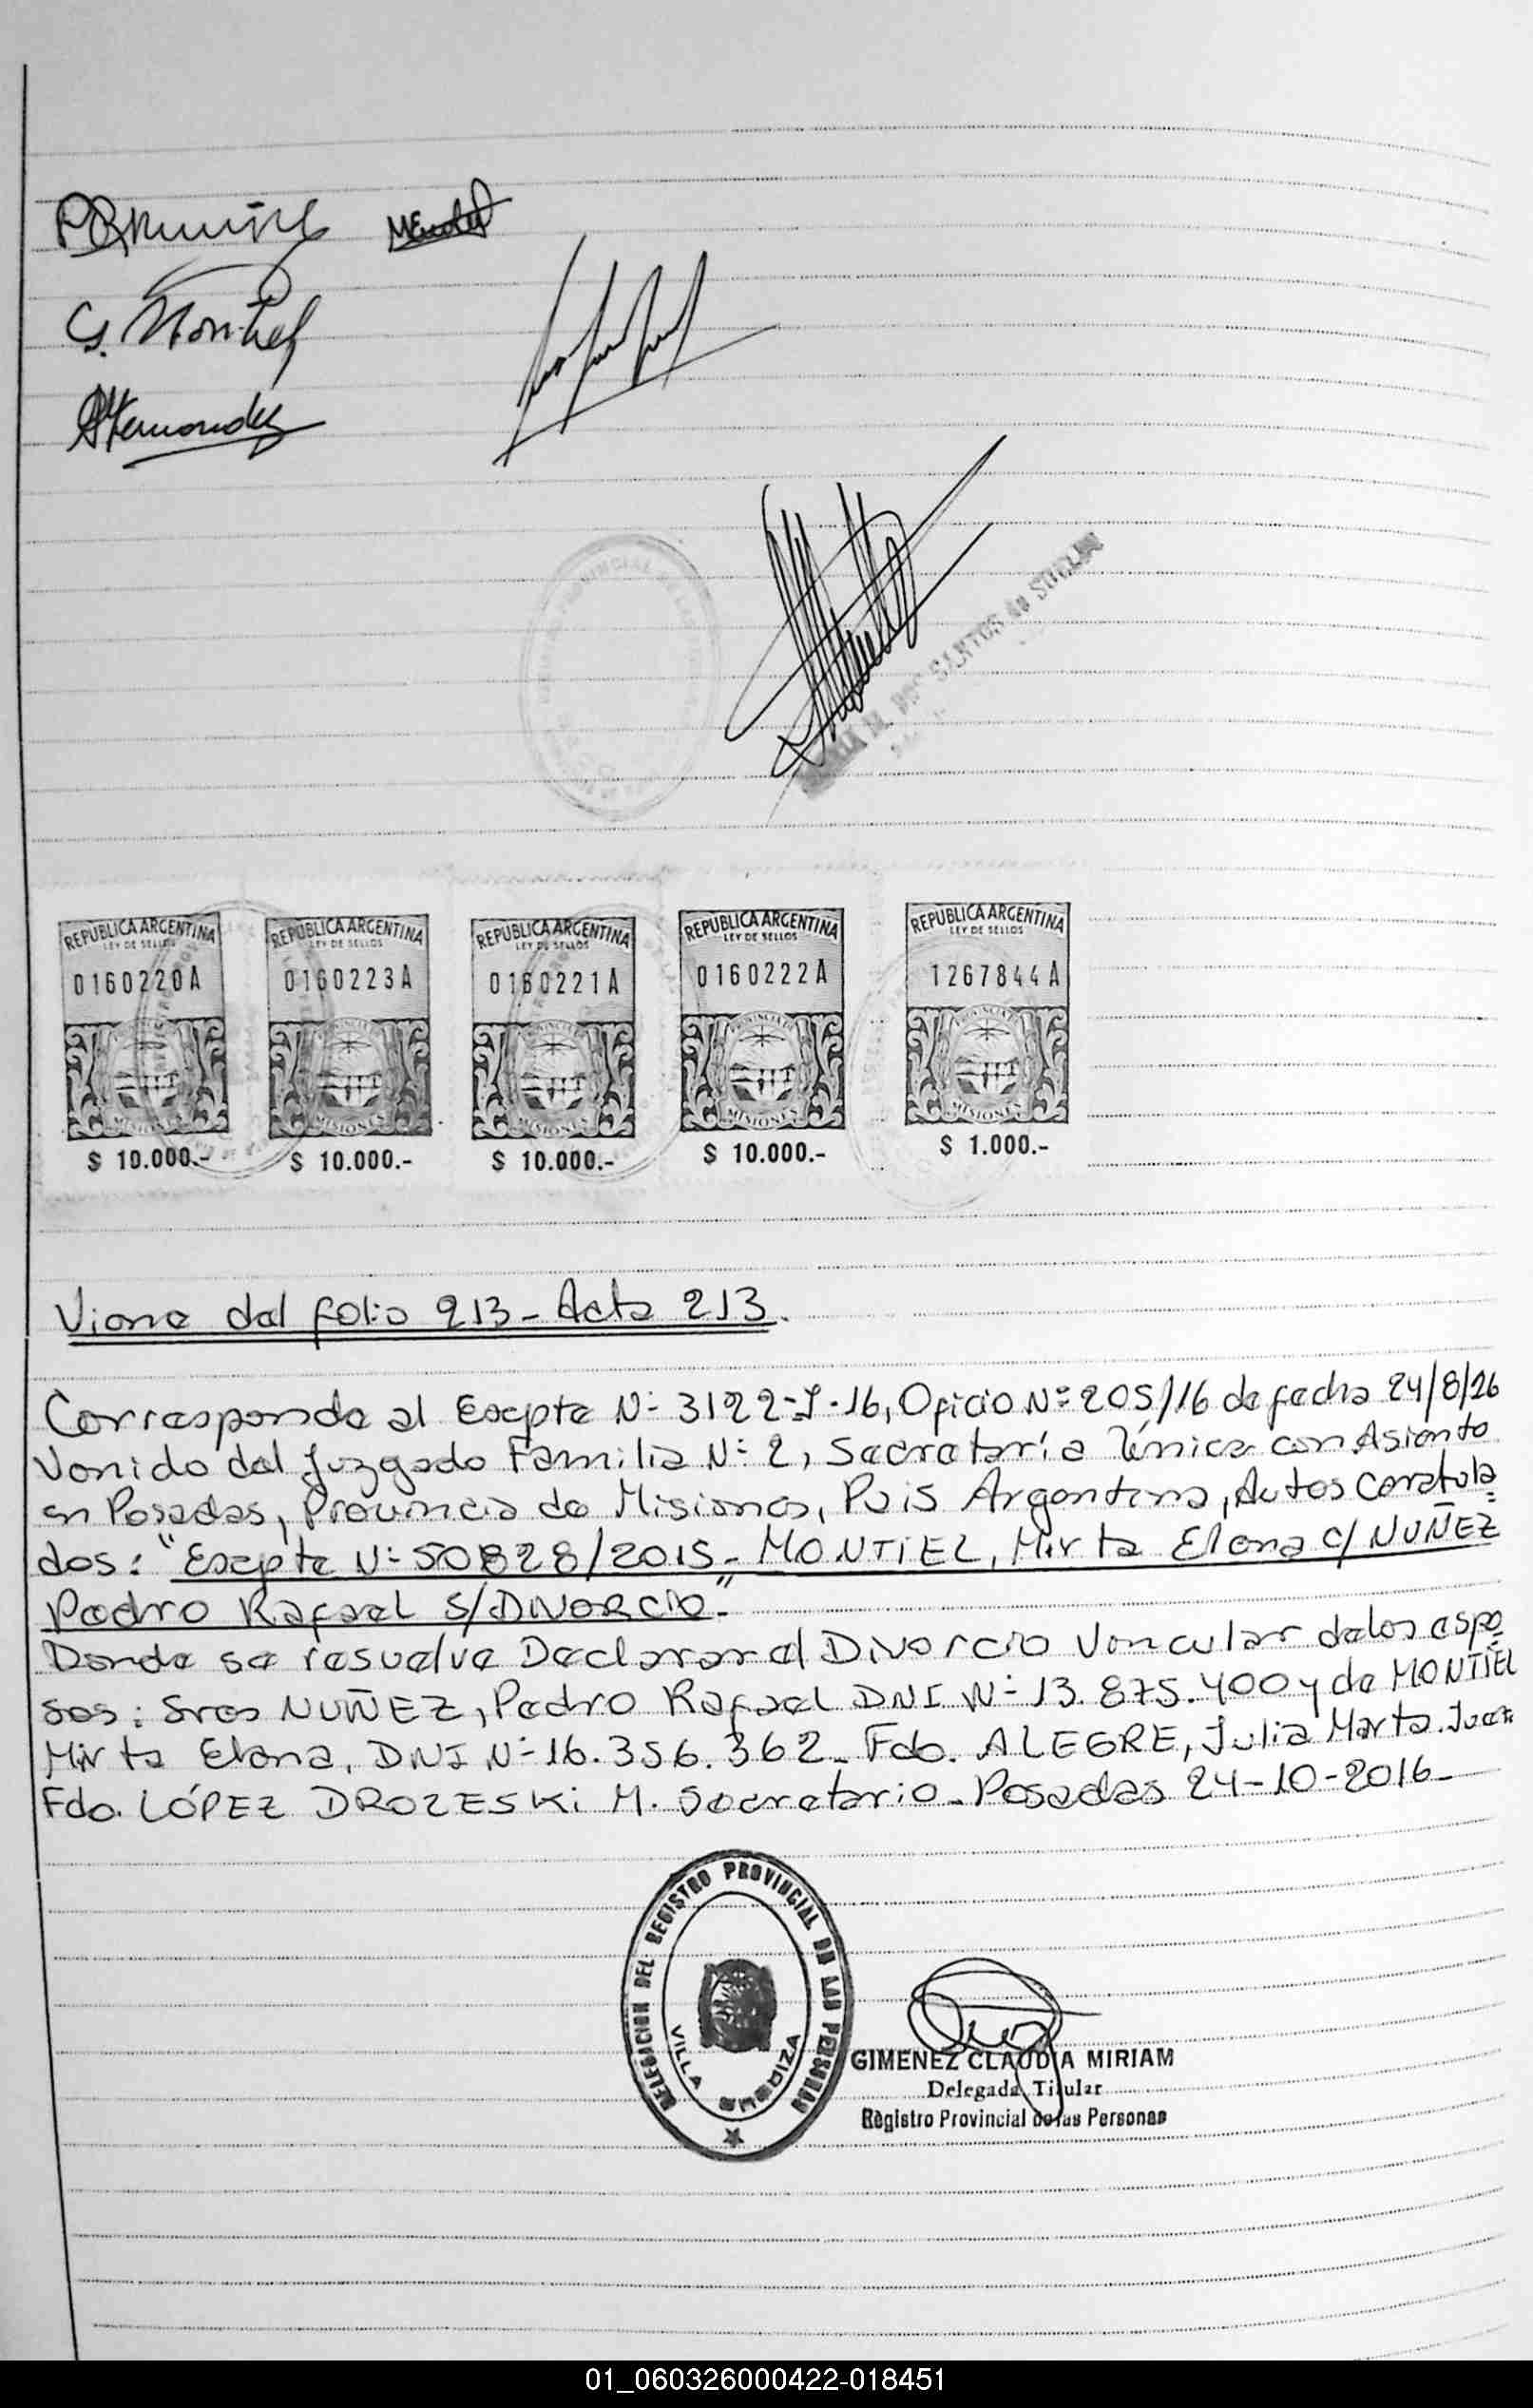 C. Montiel
AHernandez
REPUBLICA ARGENTINA
LEY DE SELLOS
0160220A
MISIONES
$ 10.000.-
REPUBLICA ARGENTINA
LEY DE SELLOS
0160223A
MISIONES
$ 10.000.-
REPUBLICA ARGENTINA
LEY DE SELLOS
0160221A
MISIONES
$ 10.000.-
REPUBLICA ARGENTINA
LEY DE SELLOS
0160222A
PROVINCIA DE
MISIONES
$ 10.000.-
REPUBLICA ARGENTINA
LEY DE SELLOS
1267844A
MISIONES
$ 1.000.-
Viene del folio 213 - Acta 213.
Corresponde al Expte N: 3122-J-16, Oficio Nº 205/16 de fecha 24/8/16
Venido del Juzgado Familia N: 2, Secretaría Única con Asiento
en Posadas, Provincia de Misiones, Pais Argentina, Autos Caratula=
dos: "Expte N: 50828/2015- MONTIEL, Mirta Elena C/ NUÑEZ
Pedro Rafael S/DIVORCIO"-
Donde se resuelve Declarar el Divorcio Vincular de los espo
sos: Sres NUÑEZ, Pedro Rafael DNI N: 13.875.400 y de MONTIEL
Mirta Elena, DNI N: 16.356.362- Fdo. ALEGRE, Julia Marta. Juez
Fdo. LÓPEZ DROZESKI M. Secretario- Posadas 24-10-2016-
DELEGACION DEL REGISTRO PROVINCIAL DE LAS PERSONAS
VILLA URQUIZA
GIMENEZ CLAUDIA MIRIAM
Delegada Titular
Registro Provincial de las Personas
01_060326000422-018451